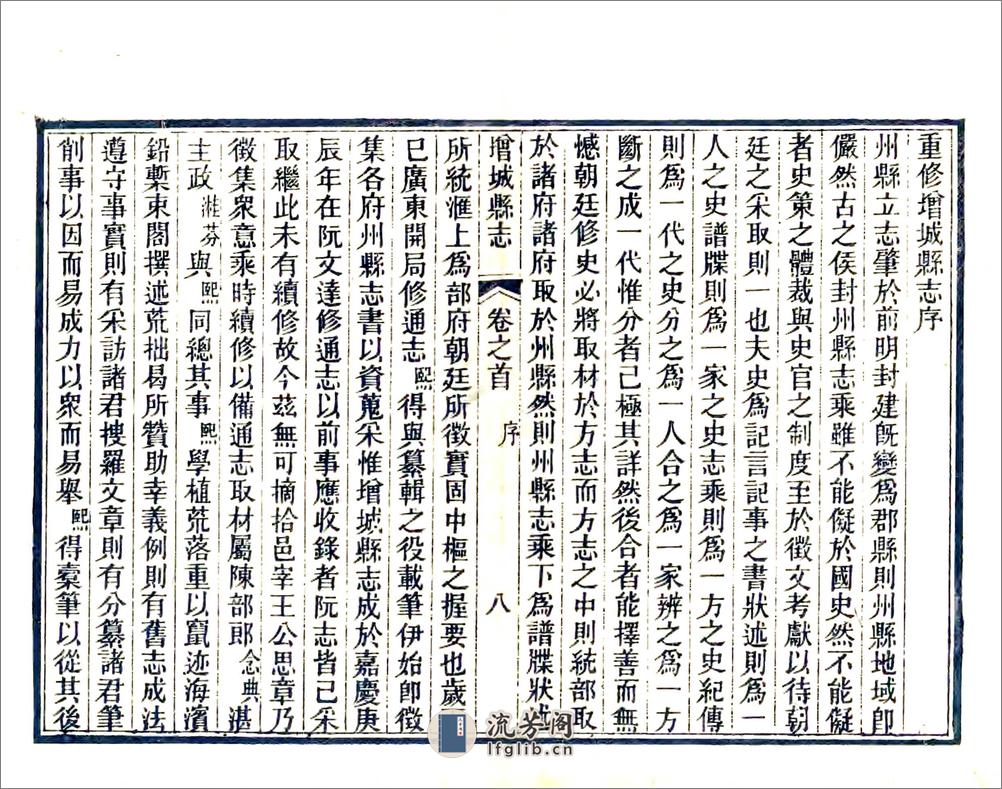 重修增城縣志序
州縣立志肇於前明封建旣變爲郡縣則州縣地域卽
儼然古之侯封州縣志乘雖不能儗於國史然不能儗
者史策之體裁與史官之制度至於徵文考獻以待朝
廷之采取則一也夫史爲記言記事之書狀述則爲一
人之史譜牒則爲一家之史志乘則爲一方之史紀傳
則爲一代之史分之爲一人合之爲一家辨之爲一方
斷之成一代惟分者已極其詳然後合者能擇善而無
憾朝廷修史必將取材於方志而方志之中則統部取
於諸府諸府取於州縣然則州縣志乘下爲譜牒狀述
增城縣志 卷之首 序 八
所統滙上爲部府朝廷所徵實固中樞之握要也歲
巳廣東開局修通志熙得與纂輯之役載筆伊始卽徵
集各府州縣志書以資蒐采惟增城縣志成於嘉慶庚
辰年在阮文達修通志以前事應收錄者阮志皆已采
取繼此未有續修故今茲無可摘拾邑宰王公思章乃
徵集衆意乘時續修以備通志取材屬陳部郎念典湛
主政湝芬與熙同總其事熙學植荒落重以竄迹海濱
鉛槧束閣撰述荒拙曷所贊助幸義例則有舊志成法
遵守事實則有采訪諸君搜羅文章則有分纂諸君筆
削事以因而易成力以衆而易舉熙得橐筆以從其後
流芳阁
lfglib.cn